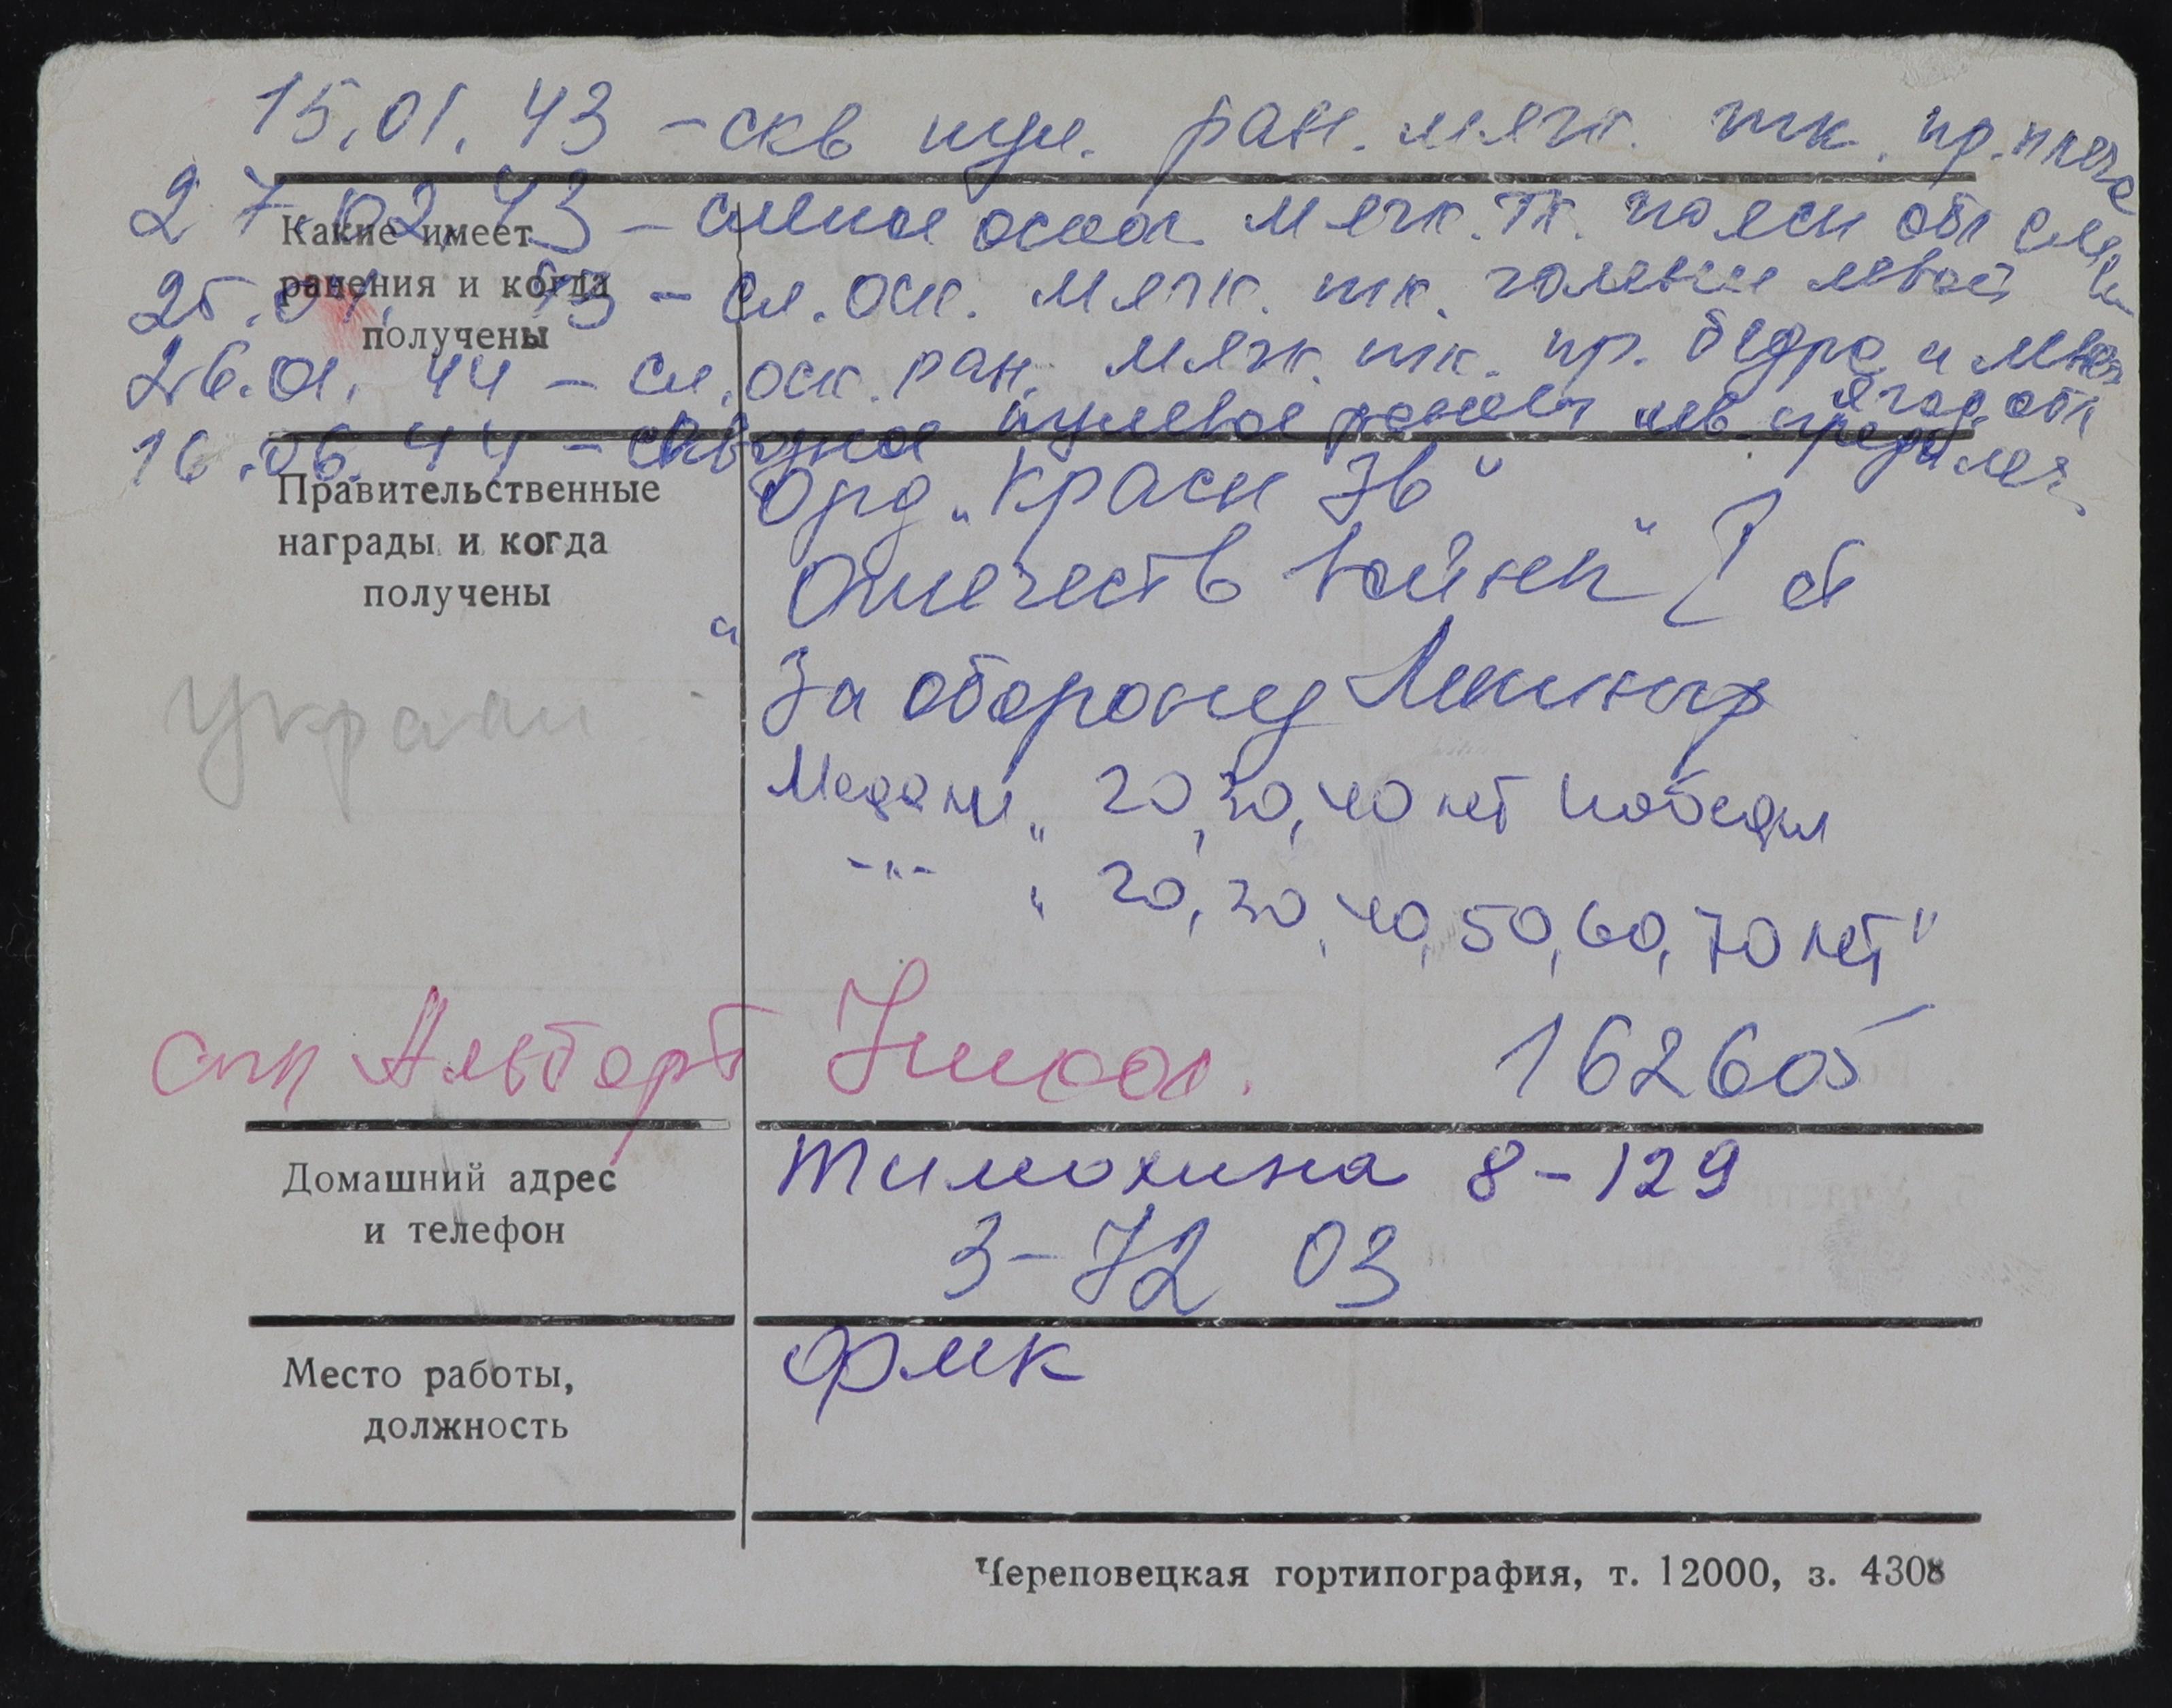 15.01.43 - скв пул. ран. мягк. тк. пр. плеча
27.02.43 - слепое оскол. мягк. тк. поясн обл
Какие имеет
ранения и когда
получены
25. 43 - сл. оск. мягк. тк. голени левой
26.01.44 - сл. оск. ран. мягк. тк. пр. бедра и
ягод. обл
16.06.44 - сквозное пулевое лев. предплеч
Правительственные
награды и когда
получены
Орд „Красн Зв"
„Отечеств войны" I ст
За оборону Ленингр
Медали „20, 30, 40 лет победы
-"- „20, 30, 40, 50, 60, 70 лет"
сын Альберт
162605
Домашний адрес
и телефон
Тимохина 8-129
3-72 03
Место работы,
должность
ФМК
Череповецкая гортипография, т. 12000, з. 4308